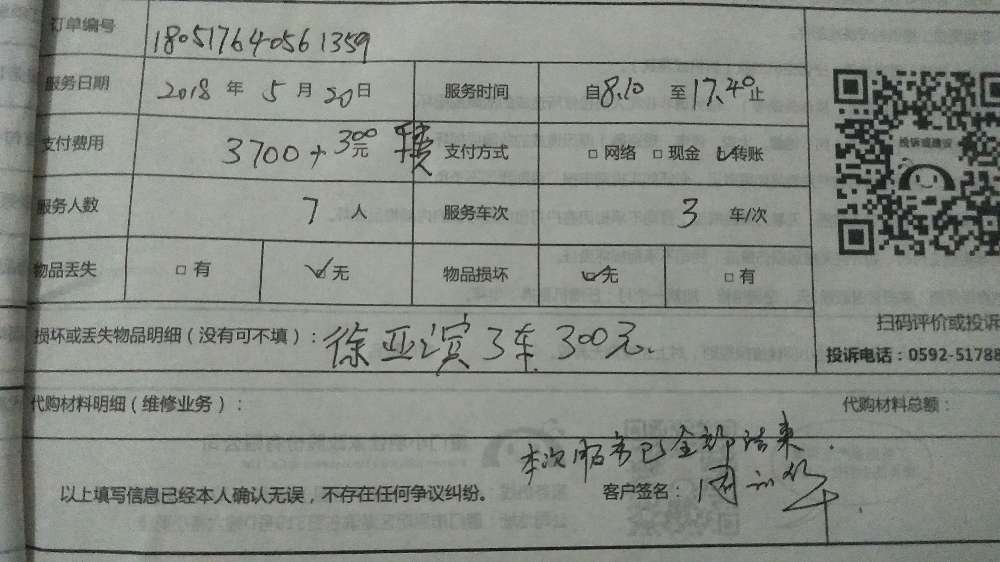 订单编号 180517640561359
服务日期 2018 年 5 月 20 日 服务时间 自 8.10 至 17.40 止
支付费用 3700+300元 支付方式 □ 网络 □ 现金 ☑ 转账
服务人数 7 人 服务车次 3 车/次
物品丢失 □ 有 ☑ 无 物品损坏 ☑ 无 □ 有
投诉或建议
损坏或丢失物品明细（没有可不填）： 徐亚滨3车300元.
扫码评价或投诉
投诉电话：0592-51788
代购材料明细（维修业务）： 代购材料总额：
本次服务已全部结束.
以上填写信息已经本人确认无误，不存在任何争议纠纷。 客户签名：